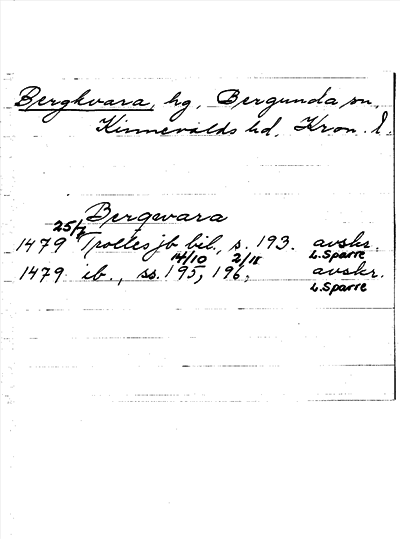 Bergkvara, hg, Bergunda sn,
Kinnevalds hd, Kron. l.
Bergwara
25/7
1479 Troltes jb bil., s. 193. avskr.
L. Sparre
14/10 2/11
1479 ib., ss. 195, 196, avskr.
L. Sparre